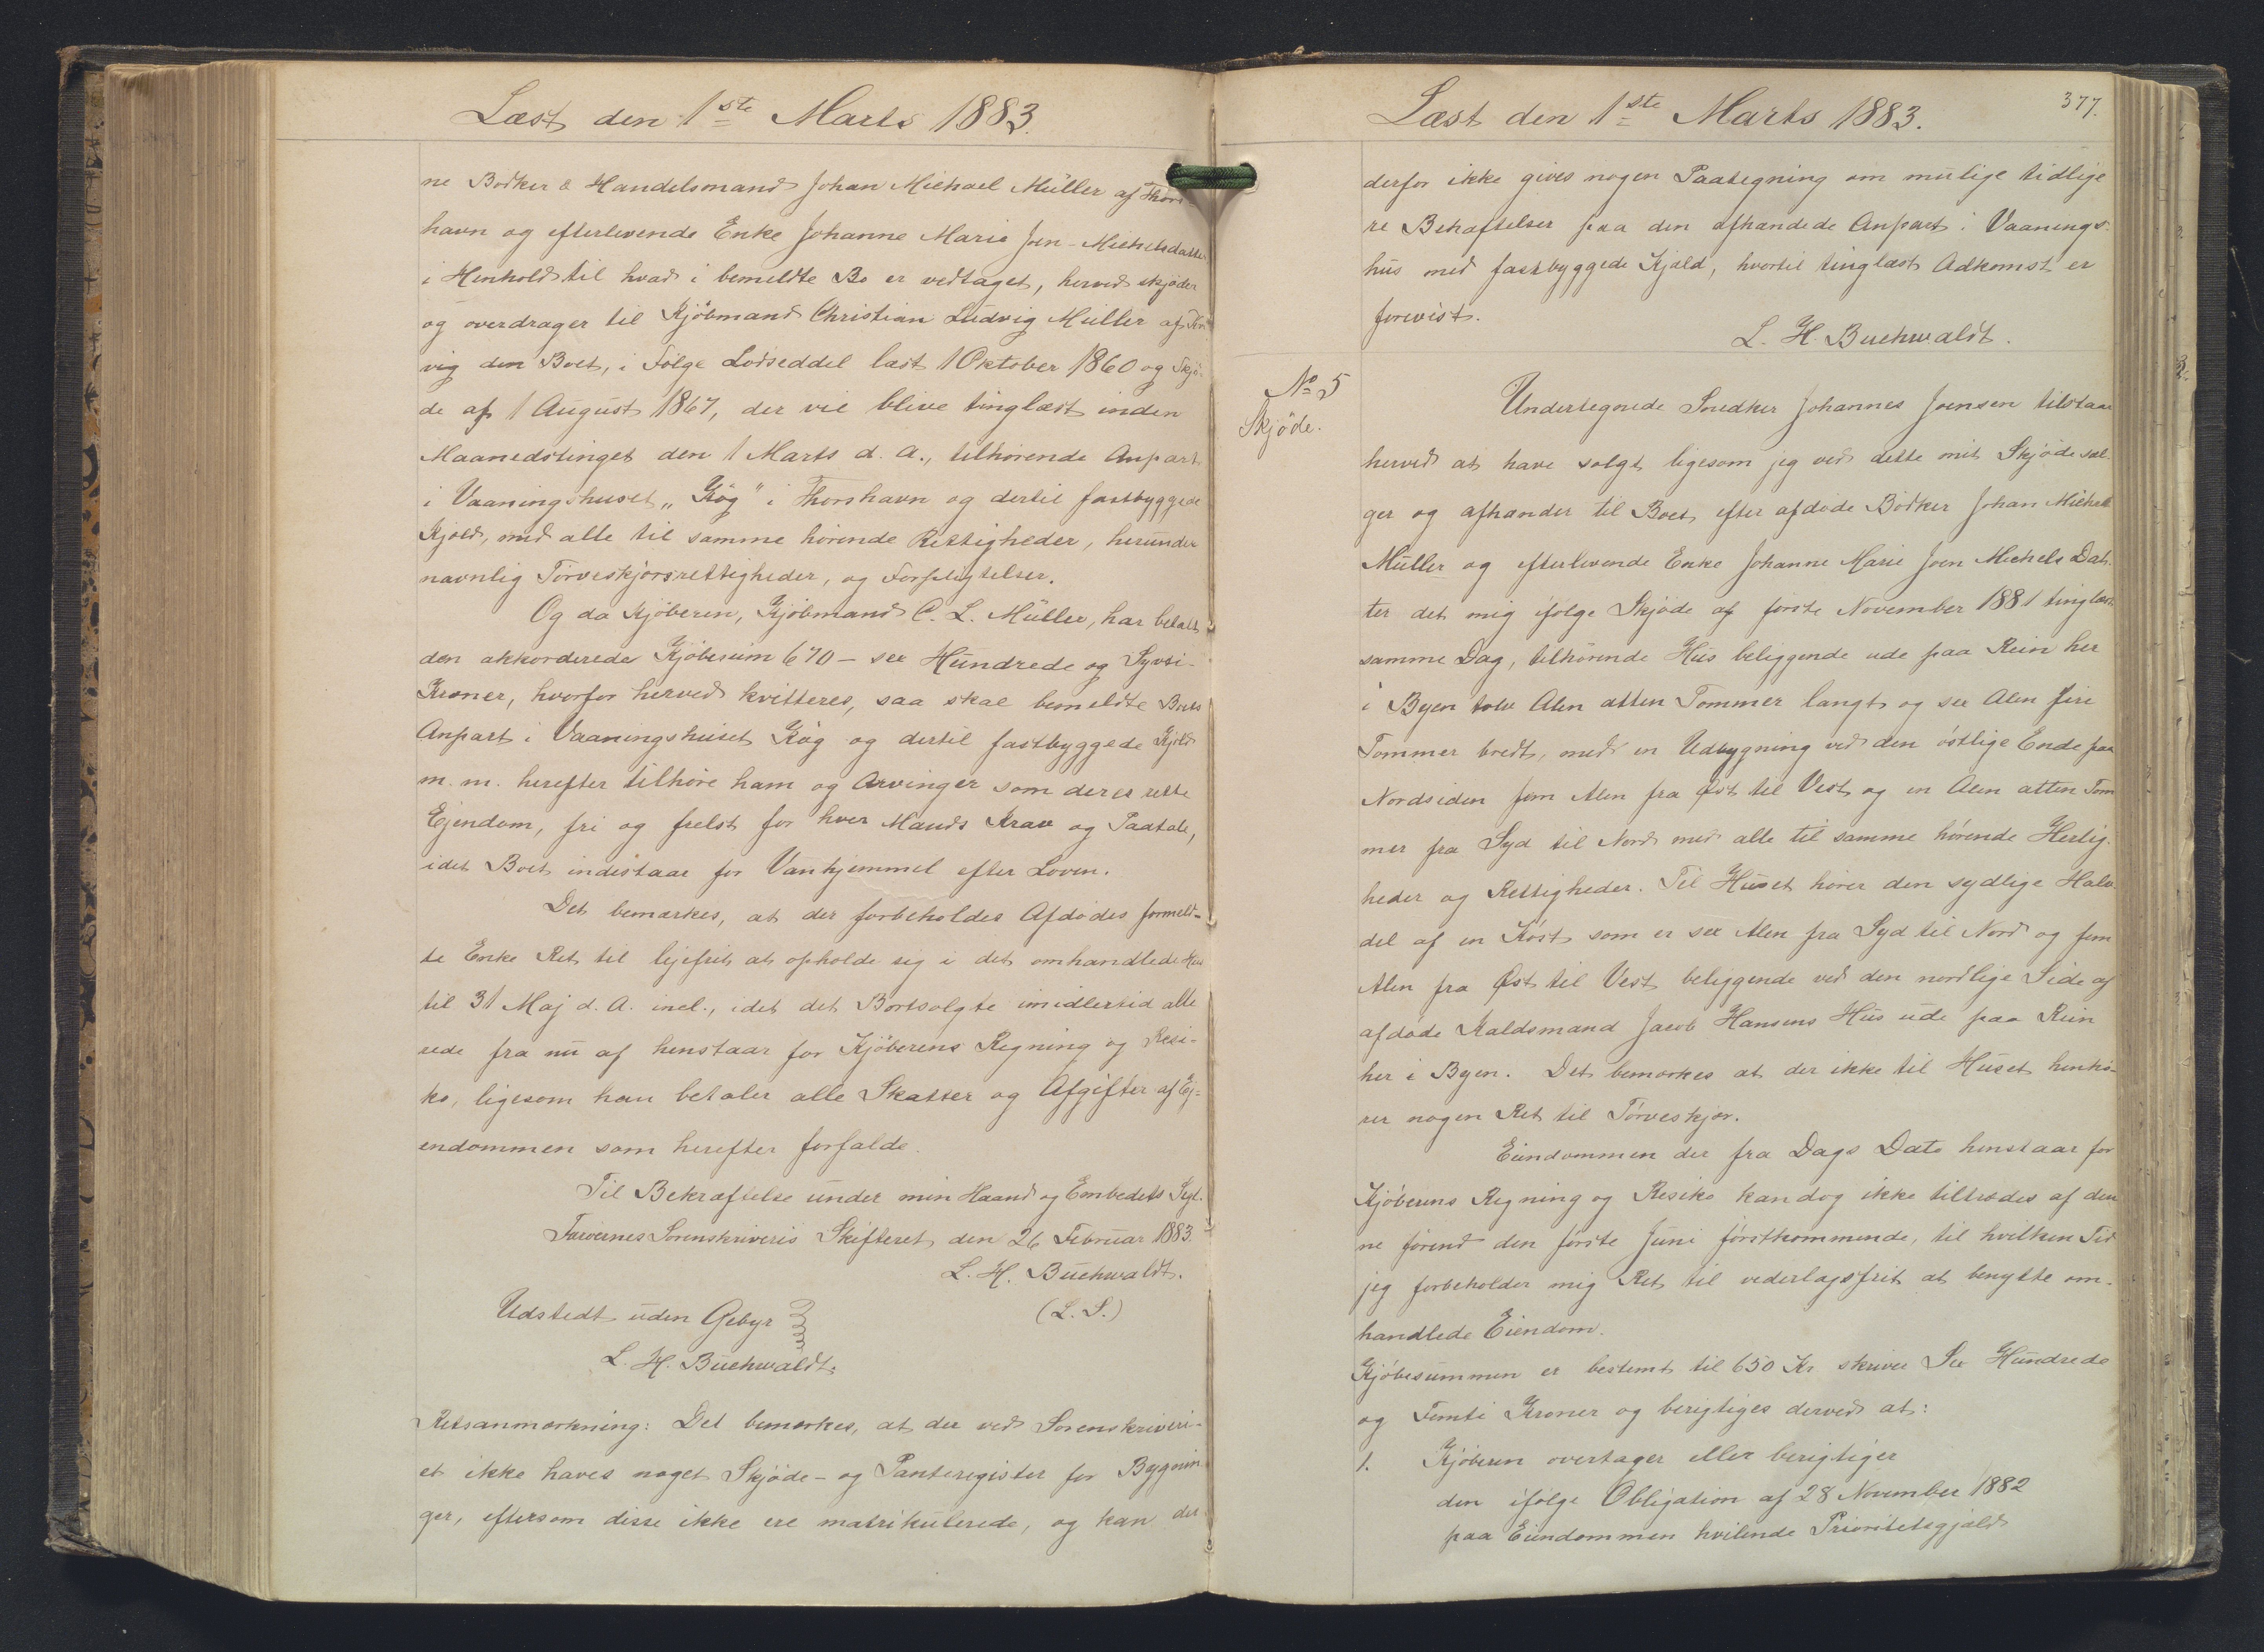 Læst den 1ste Marts 1883.
ne Bödker & Handelsmand Johan Michael Müller af Thors-
havn og efterlevende Enke Johanne Marie Joen-Michelsdatter
i Henhold til hvad i bemeldte Bo er vedtaget, herved skjöder
og overdrager til Kjöbmand Christian Ludvig Müller af
vig den Boet, i Følge Lodseddel læst 1 Oktober 1860 og Skjö-
de af 1 August 1867, der vil blive tinglæst inden
Maanedstinget den 1 Marts d. A., tilhörende Anpart
i Vaaningshuset „Kög" i Thorshavn og dertil fastbyggede
Kjæld, med alle til samme hörende Rettigheder, herunder
navnlig Törveskjærsrettigheder, og Forpligtelser.
Og da Kjöberen, Kjöbmand C. L. Müller, har betalt
den akkorderede Kjöbesum 670 - sex Hundrede og Syvti-
Kroner, hvorfor herved kvitteres, saa skal bemeldte Boets
Anpart i Vaaningshuset Kög og dertil fastbyggede Kjeld
m. m. herefter tilhöre ham og Arvinger som deres rette
Ejendom, fri og frelst for hver Mands Krav og Paatale,
idet Boet indestaar for Vanhjemmel efter Loven.
Det bemærkes, at der forbeholdes Afdödes formeld-
te Enke Ret til lejefrit at opholde sig i det omhandlede Hus
til 31 Maj d. A. incl., idet det Bortsolgte imidlertid alle
rede fra nu af henstaar for Kjöberens Regning og Resi-
ko, ligesom han betaler alle Skatter og Afgifter af Ej-
endommen som herefter forfalde.
Til Bekræftelse under min Haand og Embedets Segl.
Færøernes Sorenskriveris Skifteret den 26 Februar 1883.
L. H. Buchwaldt.
(L. S.)
Udstedt uden Gebyr
L. H. Buchwaldt.
Retsanmærkning: Det bemærkes, at der ved Sorenskriveri-
et ikke haves noget Skjöde- og Panteregister for Bygnin
ger, eftersom disse ikke ere matrikulerede, og kan der
Læst den 1ste Marts 1883.
377.
derfor ikke gives nogen Paategning om mulige tidlige
re Behæftelser paa den afhændede Anpart i Vaanings-
hus med fastbyggede Kjæld, hvortil tinglæst Adkomst er
forevist.
L. H. Buchwaldt.
No 5
Skjöde.
Undertegnede Snedker Johannes Joensen tilstaar
herved at have solgt ligesom jeg ved dette mit Skjöde sæl
ger og afhænder til Boet efter afdöde Bödker Johan Michael
Müller og efterlevende Enke Johanne Marie Joen Michels Dat-
ter det mig ifölge Skjöde af förste November 1881 tinglæst
samme Dag, tilhörende Hus beliggende ude paa Rein her
i Byen tolv Alen atten Tommer langt og sex Alen fire
Tommer bredt, med en Udbygning ved den östlige Ende paa
Nordsiden fem Alen fra Øst til Vest og en Alen atten Tom
mer fra Syd til Nord med alle til samme hörende Herlig-
heder og Rettigheder. Til Huset hörer den sydlige Halv-
del af en Köst som er sex Alen fra Syd til Nord og fem
Alen fra Øst til Vest beliggende ved den nordlige Side af
afdöde Kaldsmand Jacob Hansens Hus ude paa Rein
her i Byen. Det bemærkes at der ikke til Huset henhö-
rer nogen Ret til Törveskjær.
Eiendommen der fra Dags Dato henstaar for
Kjöberens Regning og Resiko kan dog ikke tiltrædes af den
ne förend den förste Juni förstkommende, til hvilken Tid
jeg forbeholder mig Ret til vederlagsfrit at benytte om-
handlede Eiendom.
Kjöbesummen er bestemt til 650 Kr skriver Sex Hundrede
og Femti Kroner og berigtiges derved at:
1. Kjöberen overtager eller berigtiger
den ifölge Obligation af 28 November 1882
paa Eiendommen hvilende Prioritetsgjæld